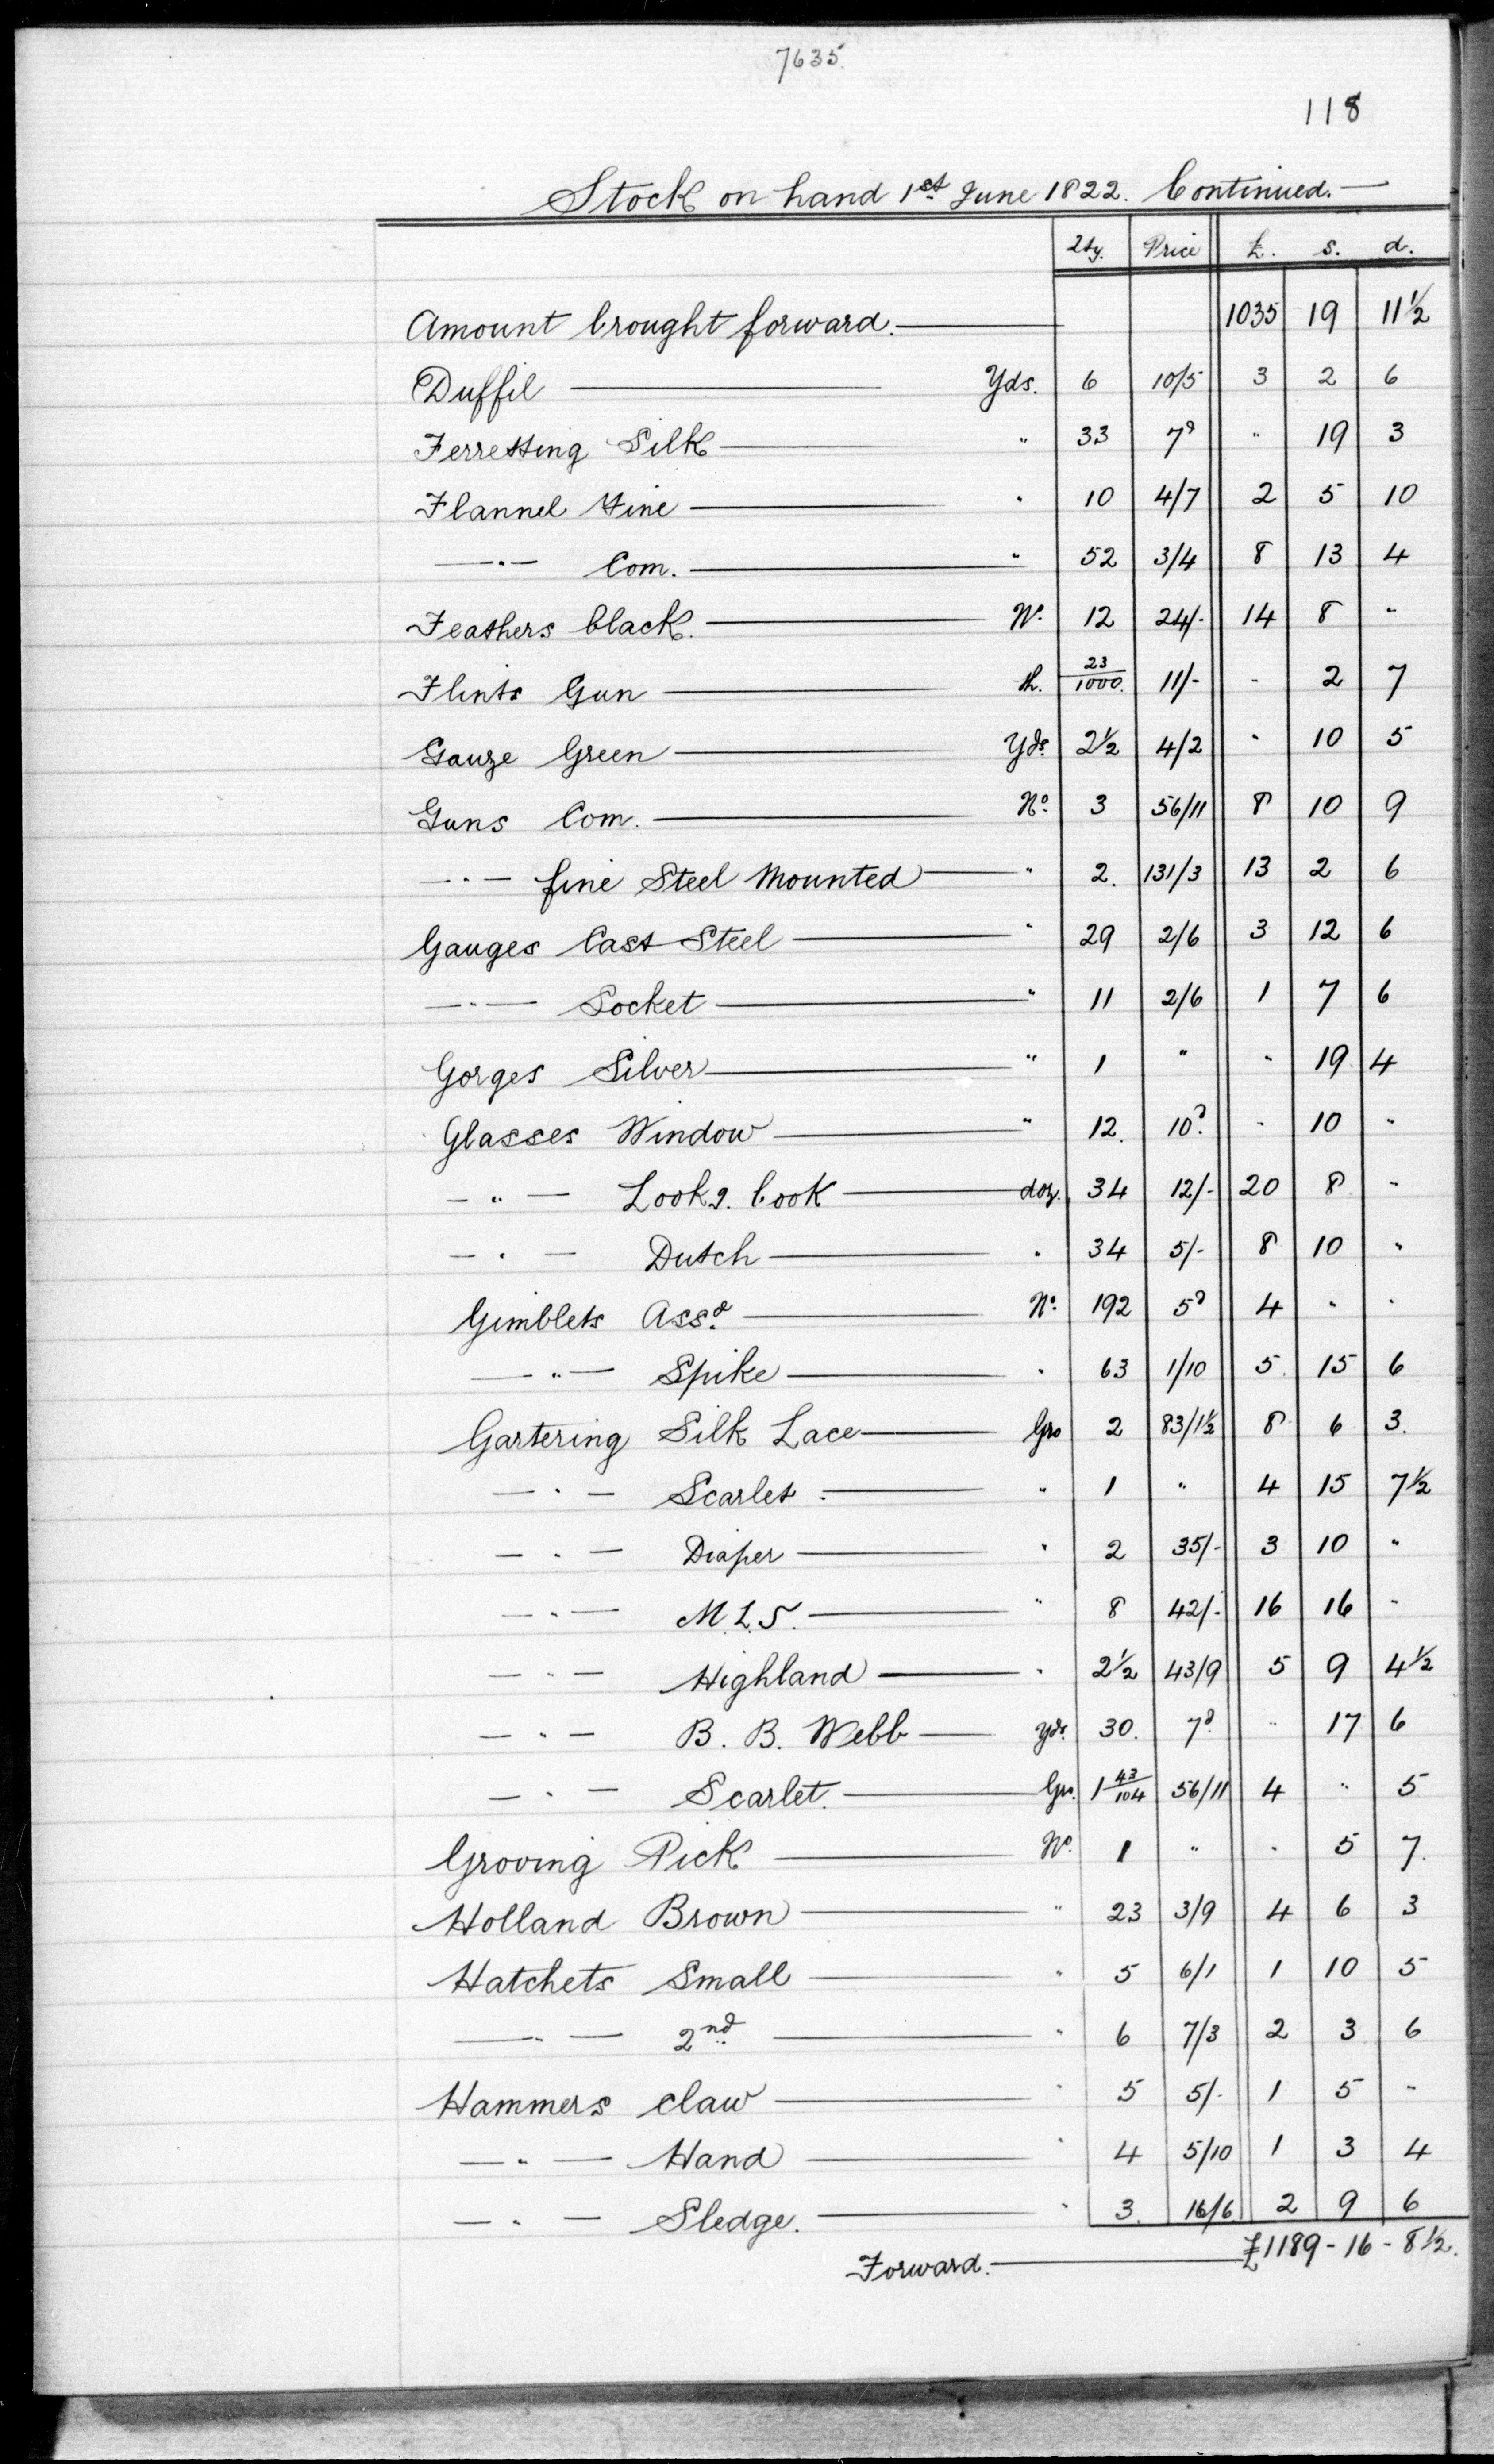 7635
118
Stock on hand 1st June 1822. Continued.—
Qty. Price £. s. d.
Amount brought forward.— 1035 19 11½
Duffil — Yds. 6 10/5 3 2 6
Ferretting Silk — " 33 7d " 19 3
Flannel Fine — " 10 4/7 2 5 10
—"— Com. — " 52 3/4 8 13 4
Feathers black. — No. 12 24/- 14 8 "
Flints Gun — th. 23/1000. 11/- - 2 7
Gauze Green — Yds. 2½ 4/2 " 10 5
Guns Com. — No. 3 56/11 8 10 9
—"— fine Steel Mounted — " 2. 131/3 13 2 6
Gauges Cast Steel — " 29 2/6 3 12 6
—"— Socket — " 11 2/6 1 7 6
Gorges Silver — " 1 " " 19 4
Glasses Window — " 12. 10d. - 10 "
—"— Lookg. book — doz. 34 12/- 20 8 "
—"— Dutch — " 34 5/- 8 10 "
Gimblets Assd. — No. 192 5d 4 " "
—"— Spike — " 63 1/10 5 15 6
Gartering Silk Lace — Gro 2 83/1½ 8 6 3.
—"— Scarlet — " 1 " 4 15 7½
—"— Diaper — " 2 35/- 3 10 "
—"— M.L.S. — " 8 42/- 16 16 -
—"— Highland — " 2½ 43/9 5 9 4½
—"— B. B. Webb — Yds. 30. 7d. " 17 6
—"— Scarlet. — Gro. 1 43/104 56/11 4 " 5
Groving Pick — No. 1 " " 5 7.
Holland Brown — " 23 3/9 4 6 3
Hatchets Small — " 5 6/1 1 10 5
—"— 2nd — " 6 7/3 2 3 6
Hammers claw — " 5 5/- 1 5 -
—"— Hand — " 4 5/10 1 3 4
—"— Sledge. — " 3. 16/6 2 9 6
Forward.— £1189-16-8½.